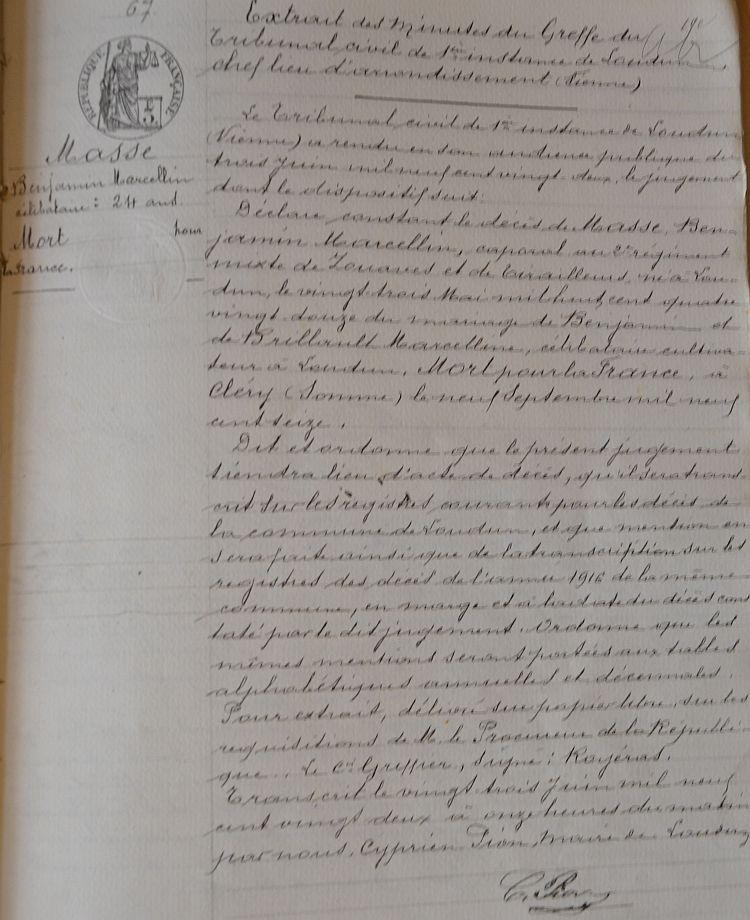 67.
Extrait des Minutes du Greffe du
Tribunal civil de 1ère instance de Loudun,
chef lieu d'arrondissement (Vienne)
RÉPUBLIQUE FRANÇAISE
Masse
Benjamin Marcellin
célibataire : 24 ans.
Mort pour
la France.
Le Tribunal civil de 1ère instance de Loudun
(Vienne) a rendu en son audience publique du
trois Juin mil neuf cent vingt-deux, le jugement
dont le dispositif suit :
Déclare constant le décès de Masse, Ben-
jamin Marcellin, caporal au 2e régiment
mixte de Zouaves et de Tirailleurs, né à Lou-
dun, le vingt trois Mai mil huit cent quatre
vingt douze du mariage de Benjamin et
de Brillault Marcelline, célibataire cultiva-
teur à Loudun, Mort pour la France, à
Cléry (Somme) le neuf Septembre mil neuf
cent seize.
Dit et ordonne que le présent jugement
tiendra lieu d'acte de décès, qu'il sera trans-
crit sur les registres courants pour les décès de
la commune de Loudun, et que mention en
sera faite ainsi que de la transcription sur les
registres des décès de l'année 1916 de la même
commune, en marge et à la date du décès cons
taté par le dit jugement. Ordonne que les
mêmes mentions seront portées aux tables
alphabétiques annuelles et décennales.
Pour extrait, délivré sur papier libre, sur les
réquisitions de M. le Procureur de la Républi-
que. Le Cis Greffier, Signé : Royéras.
Transcrit le vingt trois Juin mil neuf
cent vingt deux à onze heures du matin
par nous, Cyprien Pion, Maire de Loudun